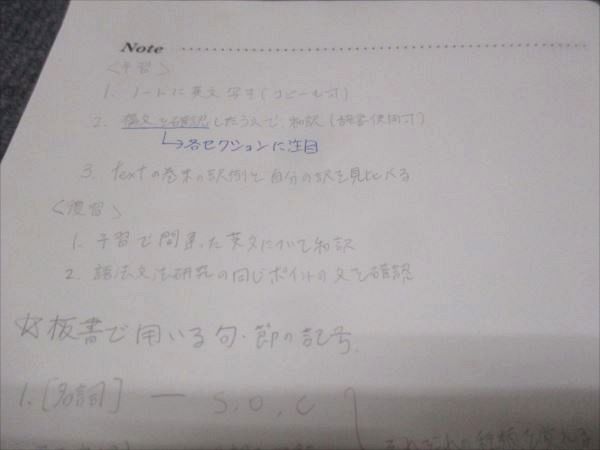 Note
<予習>
1. ノートに英文写す(コピーも可)
2. 構文を確認したうえで、和訳(辞書使用可)
↳各セクションに注目
3. textの巻末の訳例と自分の訳を見比べる
<復習>
1. 予習で間違った英文について和訳
2. 語法文法研究の同じポイントの文を確認
☆板書で用いる句・節の記号
1. [名詞] — S, O, C